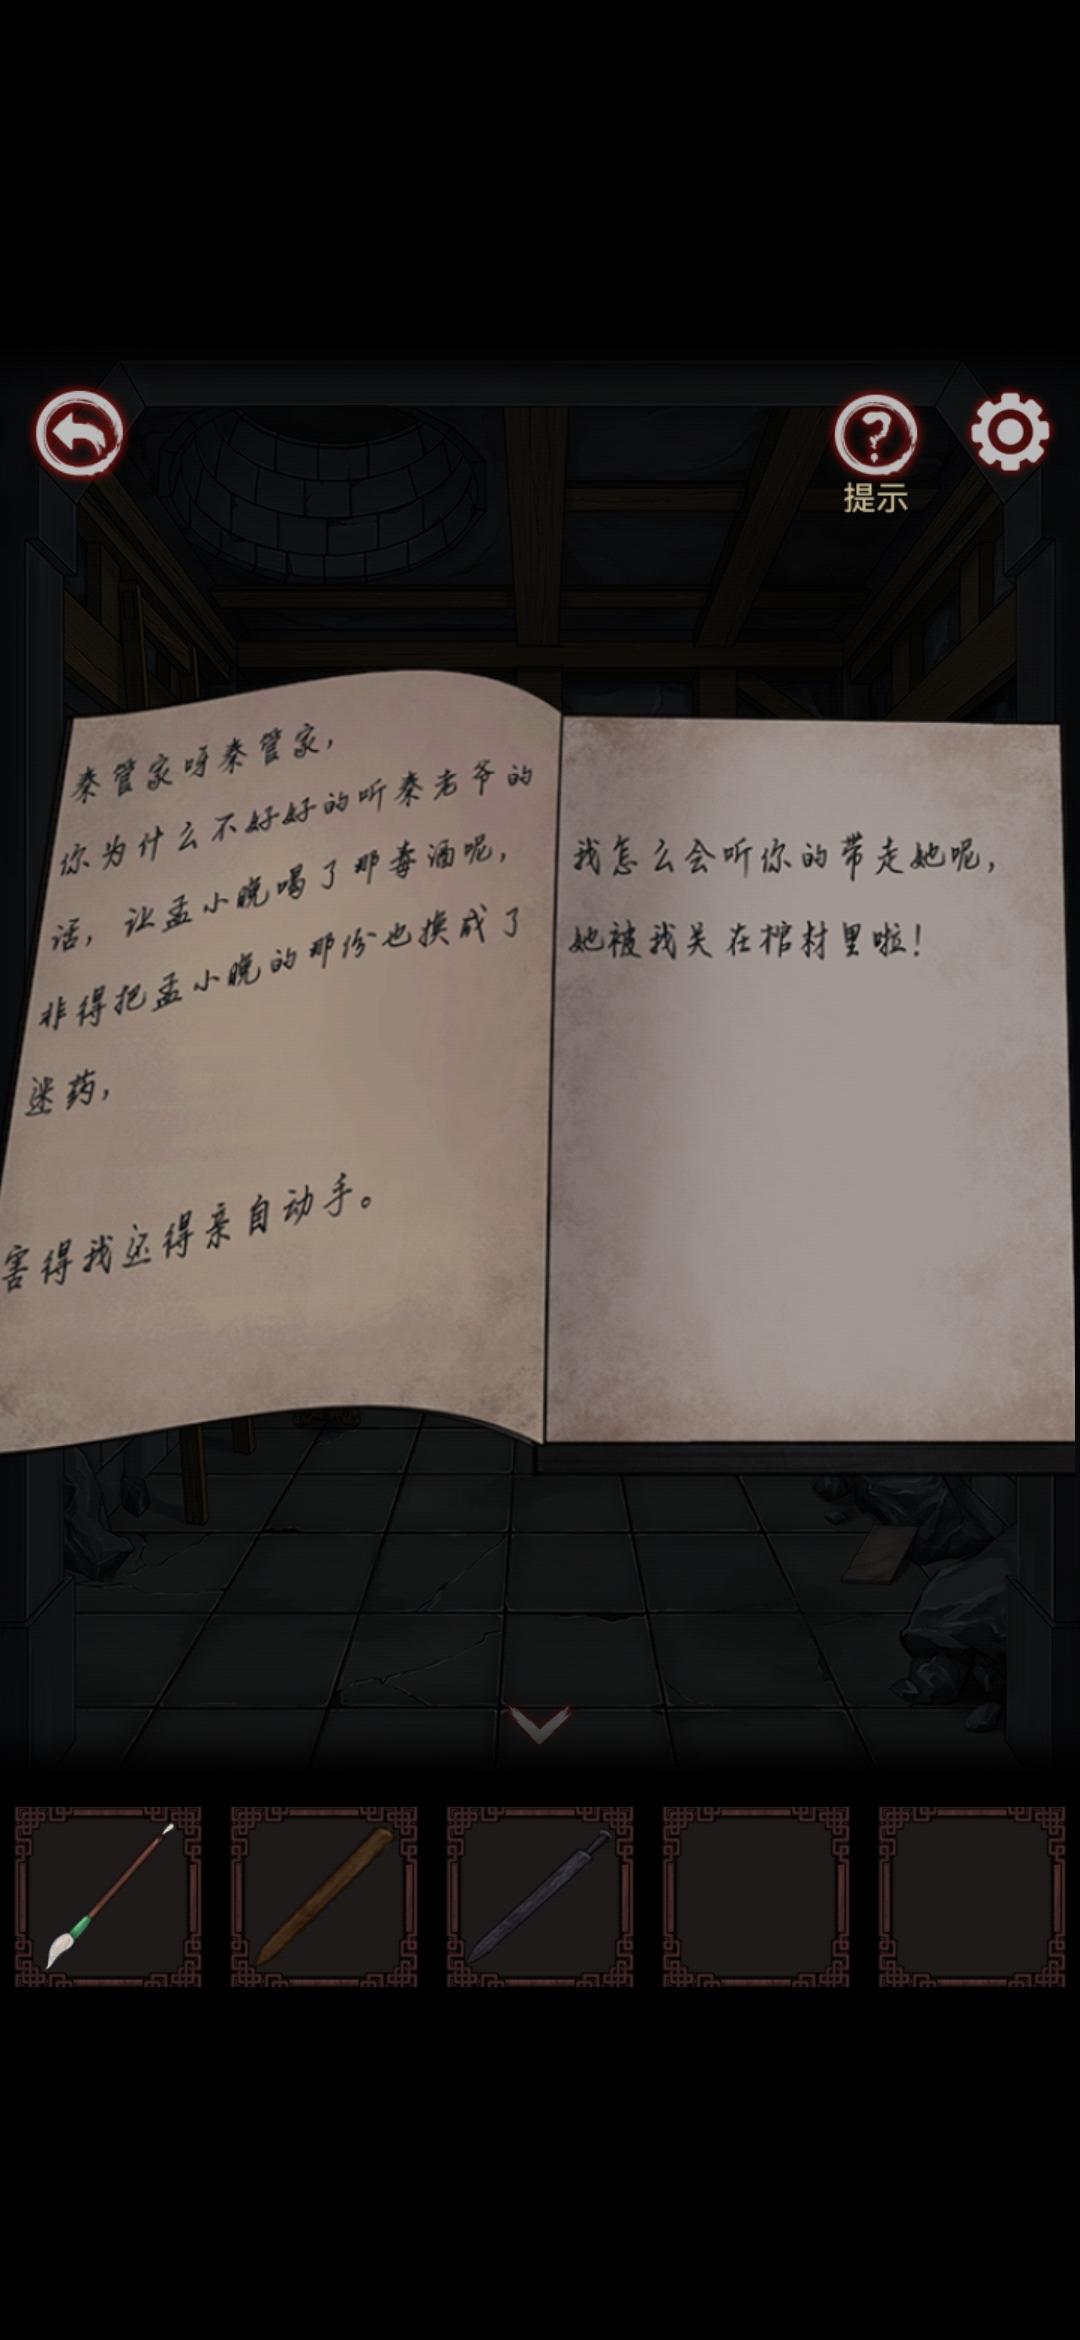 提示
秦管家呀秦管家，
你为什么不好好的听秦老爷的
话，让孟小晚喝了那毒酒呢，
非得把孟小晚的那份也换成了
迷药，
害得我还得亲自动手。
我怎么会听你的带走她呢，
她被我关在棺材里啦！